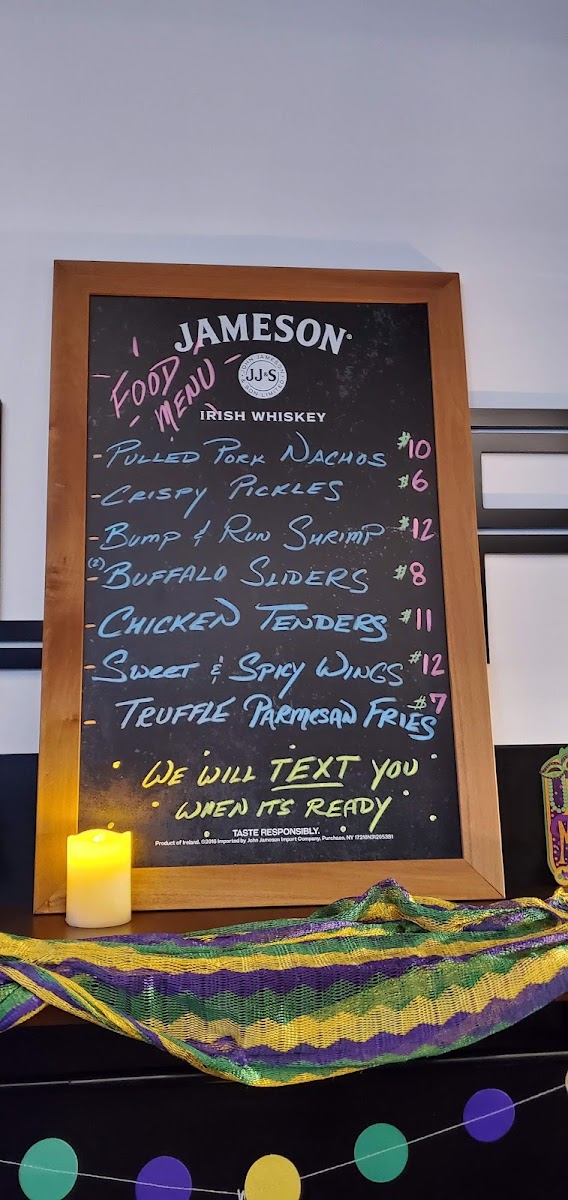 JAMESON®
JOHN JAMESON
& SON LIMITED
JJ&S
FOOD
MENU
IRISH WHISKEY
- PULLED PORK NACHOS $10
- CRISPY PICKLES $6
- BUMP & RUN SHRIMP $12
(2) - BUFFALO SLIDERS $8
- CHICKEN TENDERS $11
- SWEET & SPICY WINGS $12
- TRUFFLE PARMESAN FRIES $7
WE WILL TEXT YOU
WHEN ITS READY
TASTE RESPONSIBLY.
Product of Ireland. ©2018 Imported by John Jameson Import Company, Purchase, NY